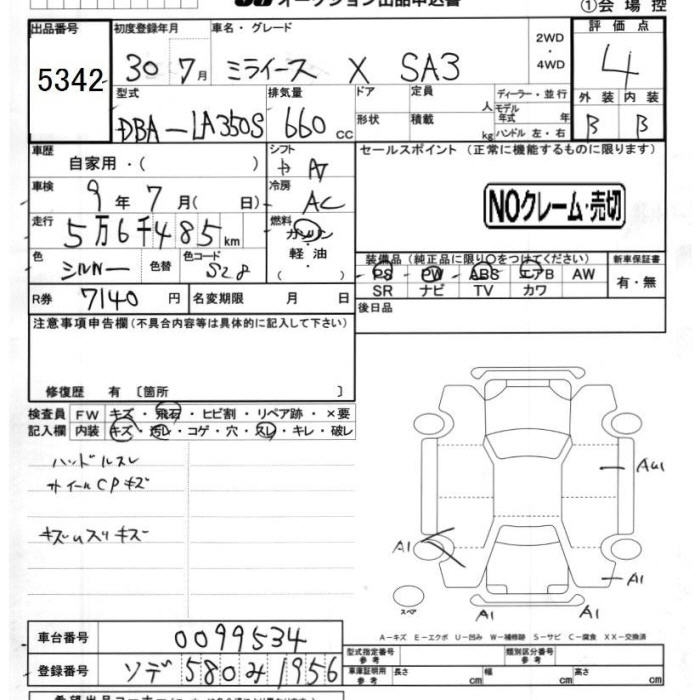 オークション出品申込書
①会場控
出品番号 初度登録年月 車名・グレード 2WD・4WD 評価点
5342 30 7月 ミライース X SA3 4
型式 排気量 ドア 定員 人 ディーラー・並行 外装 内装
DBA-LA350S 660cc 形状 積載 kg モデル年式 年 ハンドル 左・右 B B
車歴 自家用・( ) シフト AT セールスポイント (正常に機能するものに限ります)
車検 9年7月( 日) 冷房 AC
NOクレーム・売切
走行 5万6千485km 燃料 ガソリン・軽油・( )
色 シルバー 色替 色コード S28 装備品(純正品に限り○をつけてください) 新車保証書
PS PW ABS エアB AW 有・無
R券 7140円 名変期限 月 日 SR ナビ TV カワ
注意事項申告欄(不具合内容等は具体的に記入して下さい) 後日品
修復歴 有 〔箇所 〕
検査員 FW キズ・飛石・ヒビ割・リペア跡・×要
記入欄 内装 キズ・汚レ・コゲ・穴・スレ・キレ・破レ
ハンドルスレ
ホイールCPキズ
AU1
A1
A1
スペア
A1 A1
A-キズ E-エクボ U-凹み W-補修跡 S-サビ C-腐食 XX-交換済
車台番号 0099534 型式指定番号 参考 類別区分番号 参考
登録番号 ソデ 580 み 1956 車庫証明用 参考 長さ cm 幅 cm 高さ cm